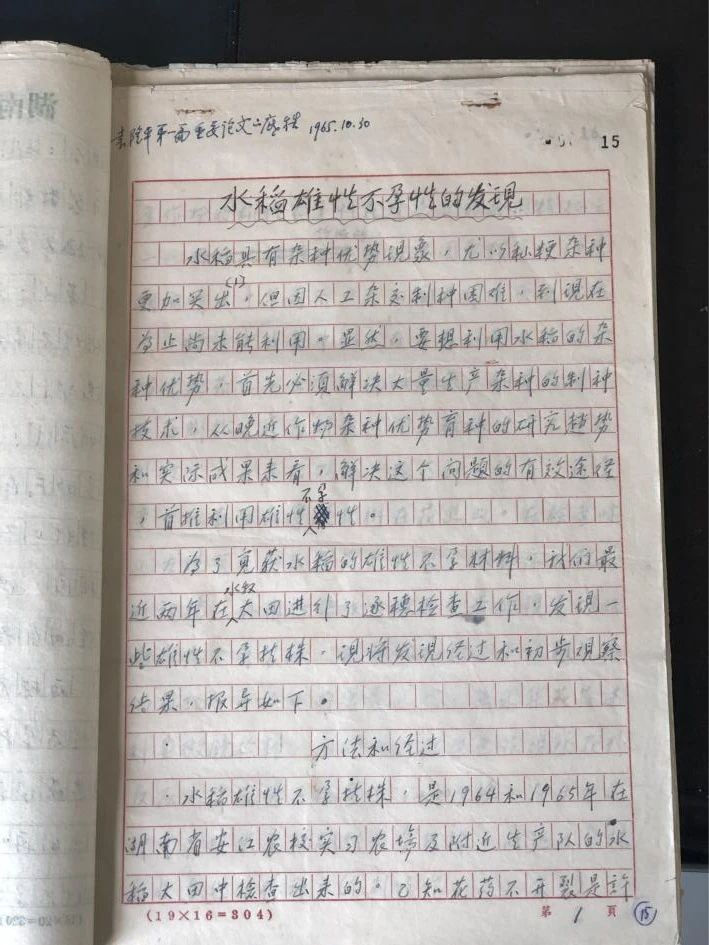 袁隆平第一篇重要论文之底稿 1965.10.30
15
水稻雄性不孕性的发现
水稻具有杂种优势现象,尤以籼粳杂种
更加突出(1),但因人工杂交制种困难,到现在
为止尚未能利用。显然,要想利用水稻的杂
种优势,首先必须解决大量生产杂种的制种
技术,从晚近作物杂种优势育种的研究趋势
和实际成果来看,解决这个问题的有效途径
,首推利用雄性不孕性。
为了覓获水稻的雄性不孕材料,我们最
近两年在水稻大田进行了逐穗检查工作,发现一
些雄性不孕植株,现将发现经过和初步观察
结果,报导如下。
方法和经过
水稻雄性不孕植株,是1964和1965年在
湖南省安江农校实习农場及附近生产队的水
稻大田中检查出来的。已知花药不开裂是許
(19×16=304)
第 1 頁
15
湖南